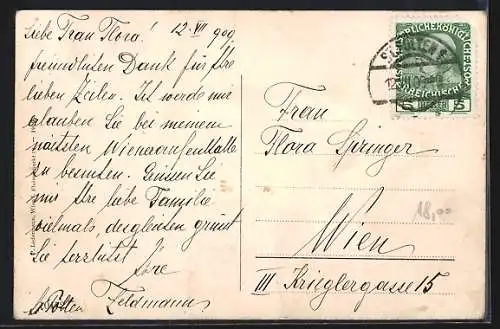 Liebe Frau Flora! 12. VII 909
freundlichsten Dank für Ihre
lieben Zeilen. Ich werde mir
erlauben Sie bei meinem
nächsten Wieneraufenthalte
zu besuchen. Grüssen Sie
mir Ihre liebe Familie
vielmals, desgleichen grüsst
Sie herzlichst Ihre
St. Pölten Feldmann
Frau
Flora Springer
Wien
III Krieglergasse 15
18,00
ST. PÖLTEN
5 5